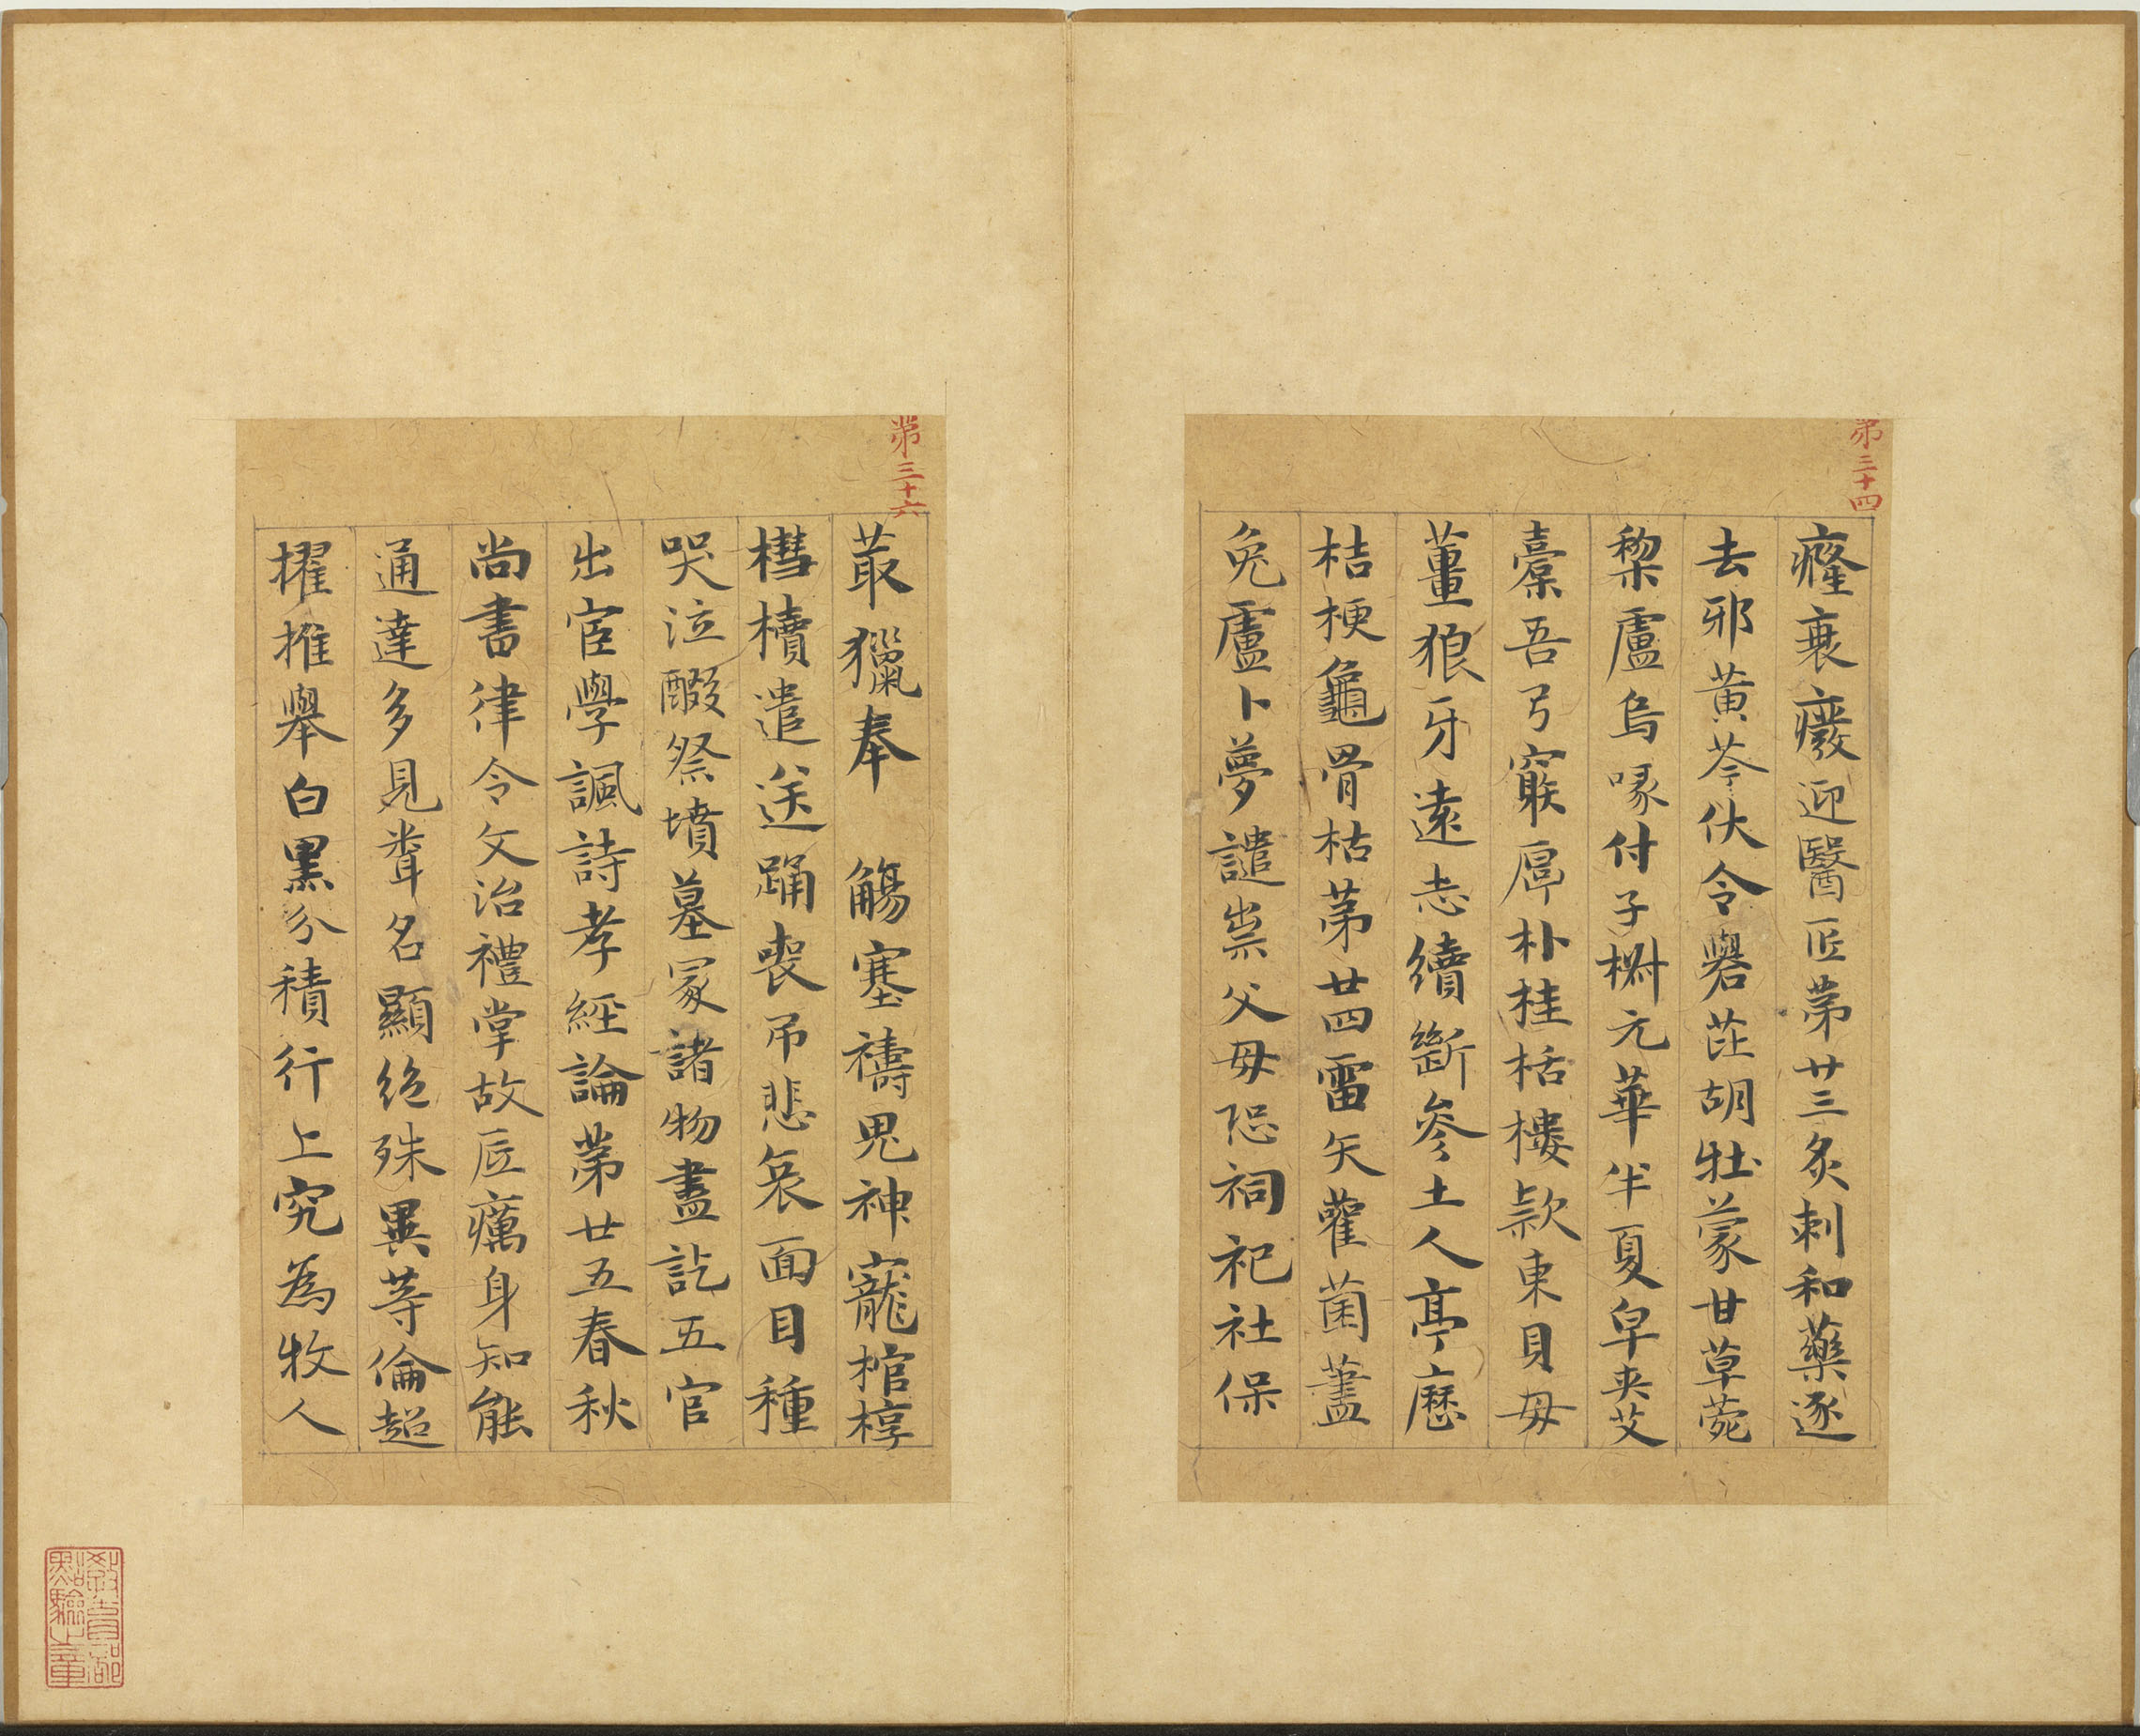 第三十四
癃衰癈迎醫匠苐廿三灸刺和藥逐
去邪黃芩伏令礜茈胡牡蒙甘草菀
棃盧烏喙付子椒元華半夏皁夾艾
橐吾弓窮厚朴桂栝樓款東貝毋
薑狼牙遠志續斷參土人亭歷
桔梗龜骨枯苐廿四雷矢雚菌藎
兔盧卜夢譴祟父母恐祠祀社保
第三十六
菆獵奉 觴塞禱鬼神寵棺椁
槥櫝遣送踊喪吊悲哀面目種
哭泣醊祭墳墓冢諸物盡訖五官
出宦學諷詩孝經論苐廿五春秋
尚書律令文治禮掌故匠癘身知能
通達多見聞名顯絕殊異等倫超
櫂推舉白黑分積行上究為牧人
教育部點驗之章